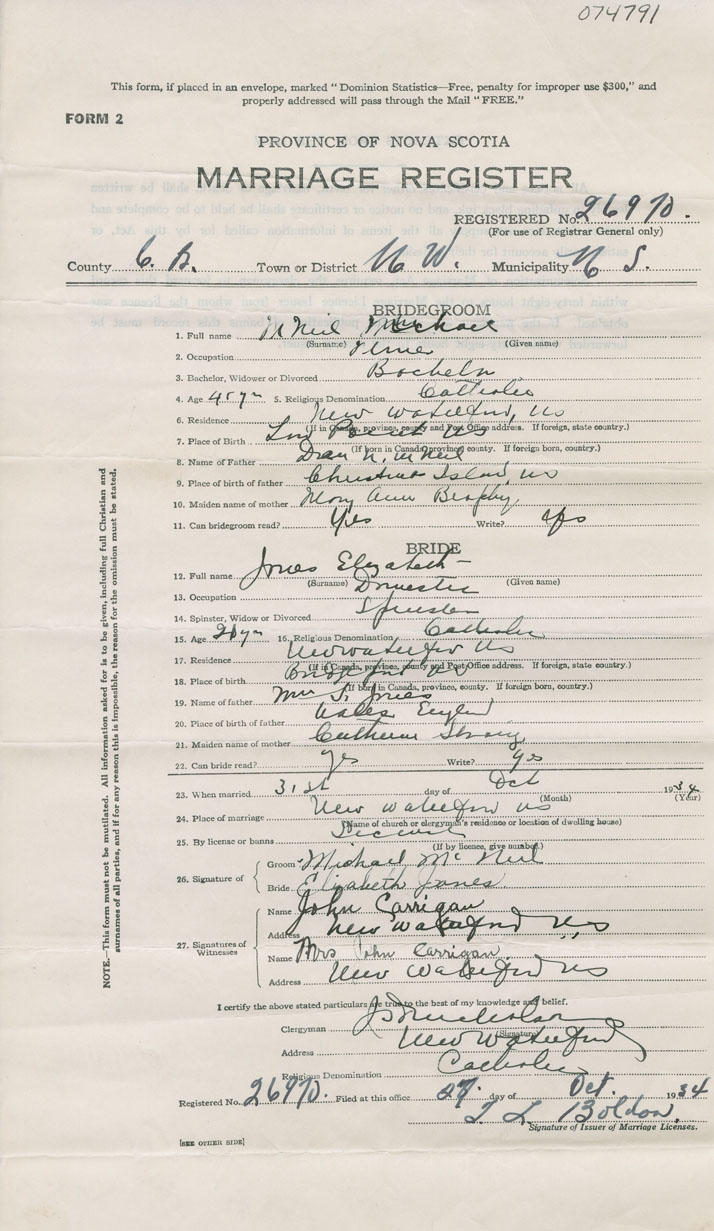 074791
This form, if placed in an envelope, marked "Dominion Statistics—Free, penalty for improper use $300," and
properly addressed will pass through the Mail "FREE."
FORM 2
PROVINCE OF NOVA SCOTIA
MARRIAGE REGISTER
REGISTERED No. 26970.
(For use of Registrar General only)
County C. B. Town or District N W. Municipality N S.
BRIDEGROOM
1. Full name McNeil Michael
(Surname) (Given name)
2. Occupation
3. Bachelor, Widower or Divorced Bachelor
4. Age 45 yrs 5. Religious Denomination Catholic
6. Residence New Waterford, NS
(If in Canada, province, county and Post Office address. If foreign, state country.)
7. Place of Birth NS
(If born in Canada, province, county. If foreign born, country.)
8. Name of Father McNeil
9. Place of birth of father Christmas Island, NS
10. Maiden name of mother Mary Ann Brophy
11. Can bridegroom read? Yes Write? Yes
BRIDE
12. Full name Jones Elizabeth
(Surname) (Given name)
13. Occupation Domestic
14. Spinster, Widow or Divorced Spinster
15. Age yrs 16. Religious Denomination Catholic
17. Residence New Waterford NS
(If in Canada, province, county and Post Office address. If foreign, state country.)
18. Place of birth Bridgeport NS
(If born in Canada, province, county. If foreign born, country.)
19. Name of father Jones
20. Place of birth of father Wales England
21. Maiden name of mother Catherine Strong
22. Can bride read? yes Write? yes
23. When married 31st day of Oct 1934
(Month) (Year)
24. Place of marriage New Waterford NS
(Name of church or clergyman's residence or location of dwelling house)
25. By license or banns License
(If by licence, give number.)
26. Signature of Groom Michael McNeil
Bride Elizabeth Jones
27. Signatures of Witnesses Name John Carrigan
Address New Waterford NS
Name Mrs John Carrigan
Address New Waterford NS
I certify the above stated particulars are true to the best of my knowledge and belief.
Clergyman
(Signature)
Address New Waterford
Religious Denomination Catholic
Registered No. 26970. Filed at this office 27. day of Oct. 1934
Boldon.
Signature of Issuer of Marriage Licenses.
[SEE OTHER SIDE]
NOTE.—This form must not be mutilated. All information asked for is to be given, including full Christian and
surnames of all parties, and if for any reason this is impossible, the reason for the omission must be stated.